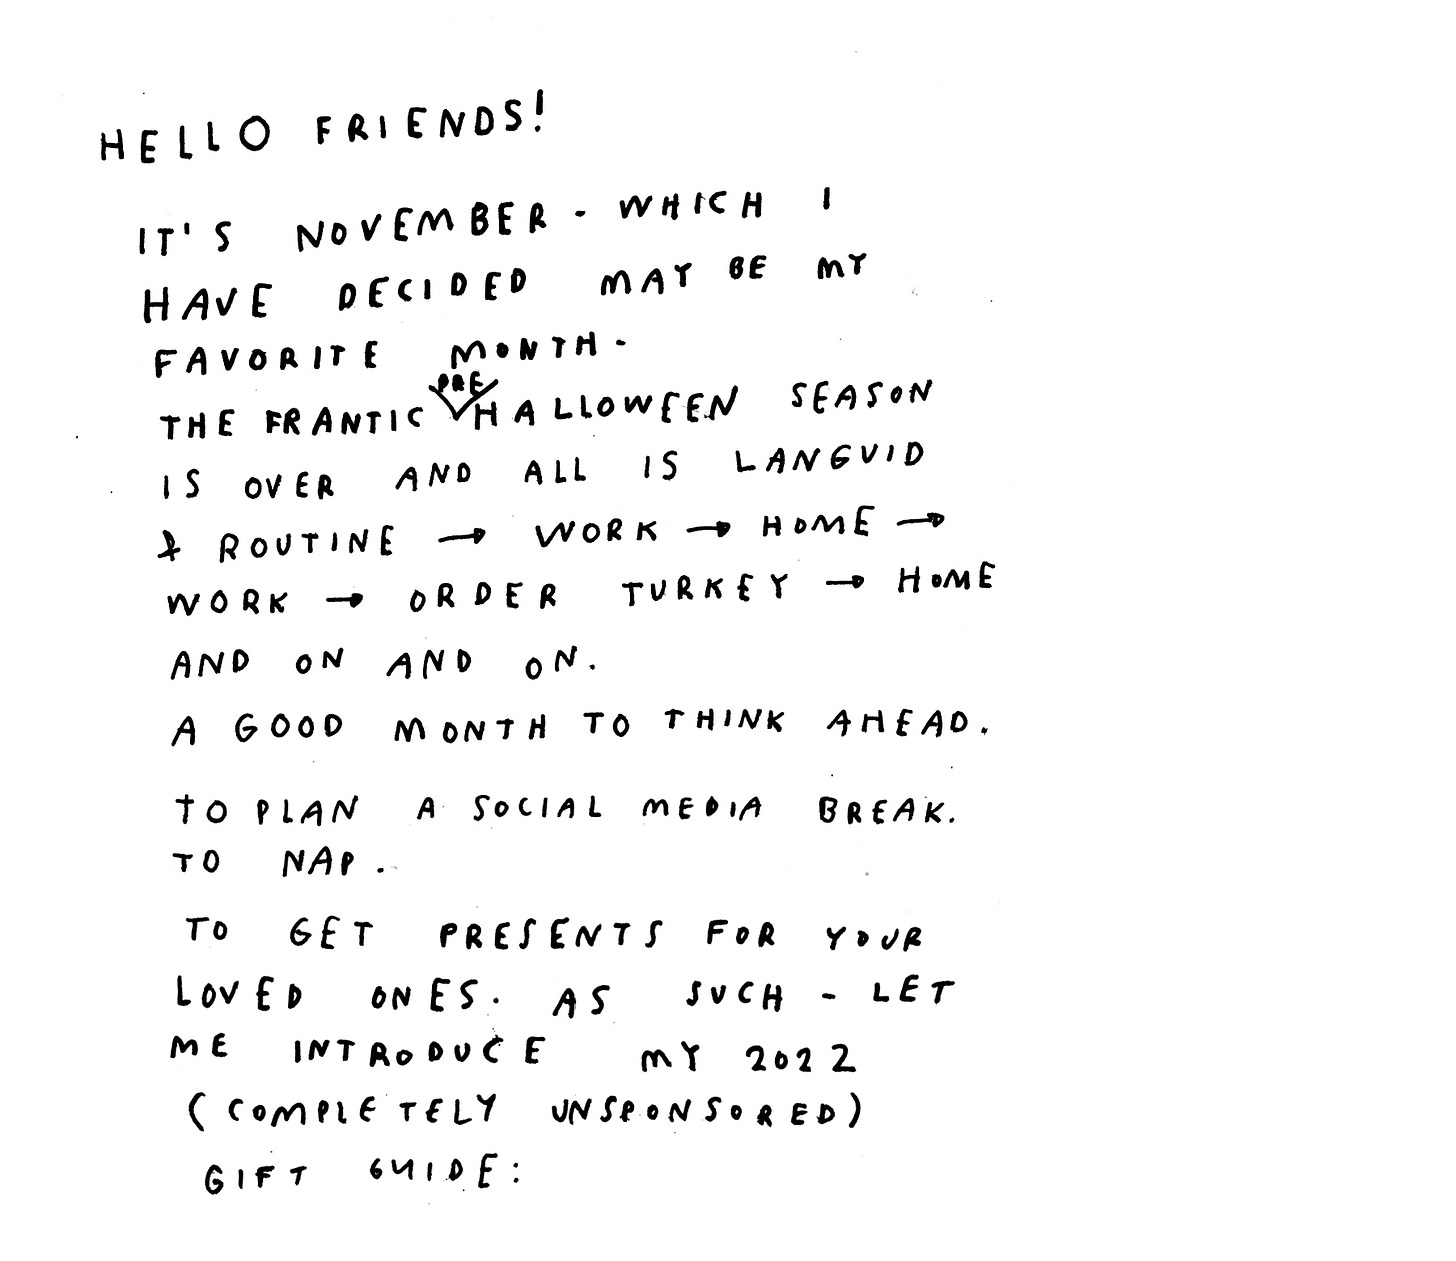 HELLO FRIENDS!
IT'S NOVEMBER - WHICH I
HAVE DECIDED MAY BE MY
FAVORITE MONTH.
THE FRANTIC PRE HALLOWEEN SEASON
IS OVER AND ALL IS LANGUID
& ROUTINE → WORK → HOME →
WORK → ORDER TURKEY → HOME
AND ON AND ON.
A GOOD MONTH TO THINK AHEAD.
TO PLAN A SOCIAL MEDIA BREAK.
TO NAP.
TO GET PRESENTS FOR YOUR
LOVED ONES. AS SUCH - LET
ME INTRODUCE MY 2022
(COMPLETELY UNSPONSORED)
GIFT GUIDE: